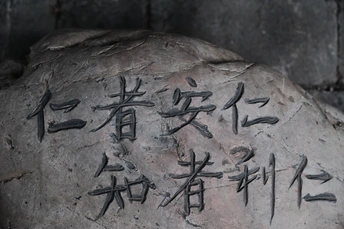 仁者安仁
知者利仁